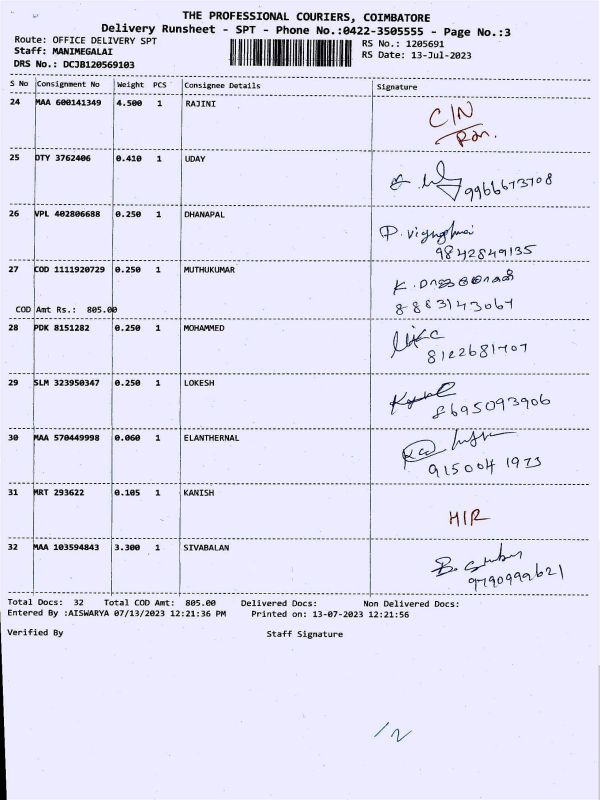 THE PROFESSIONAL COURIERS, COIMBATORE
Delivery Runsheet - SPT - Phone No.:0422-3505555 - Page No.:3
Route: OFFICE DELIVERY SPT RS No.: 1205691
Staff: MANIMEGALAI RS Date: 13-Jul-2023
DRS No.: DCJB120569103
S No Consignment No Weight PCS Consignee Details Signature
24 MAA 600141349 4.500 1 RAJINI C/N
25 DTY 3762406 0.410 1 UDAY
9966673708
26 VPL 402806688 0.250 1 DHANAPAL
9842849135
27 COD 1111920729 0.250 1 MUTHUKUMAR
COD Amt Rs.: 805.00 8883143067
28 PDK 8151282 0.250 1 MOHAMMED
8122681707
29 SLM 323950347 0.250 1 LOKESH
8695093906
30 MAA 570449998 0.060 1 ELANTHERNAL
9150041973
31 MRT 293622 0.105 1 KANISH
HIR
32 MAA 103594843 3.300 1 SIVABALAN
9790999621
Total Docs: 32 Total COD Amt: 805.00 Delivered Docs: Non Delivered Docs:
Entered By :AISWARYA 07/13/2023 12:21:36 PM Printed on: 13-07-2023 12:21:56
Verified By Staff Signature